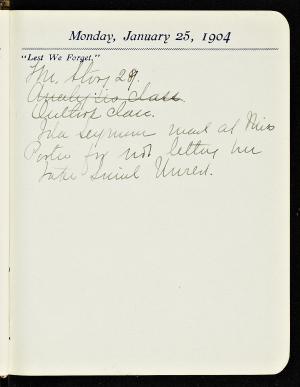 Monday, January 25, 1904
"Lest We Forget."
Story 29.
Analytis Class.
Culture Class.
Ida Seymour mad at Miss
Porter for not letting her
take Unred.